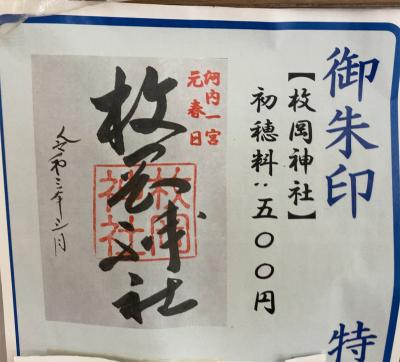 御朱印
特
【枚岡神社】
初穂料:五〇〇円
河内一宮
元春日
枚岡神社
枚岡
神社
令和三年三月